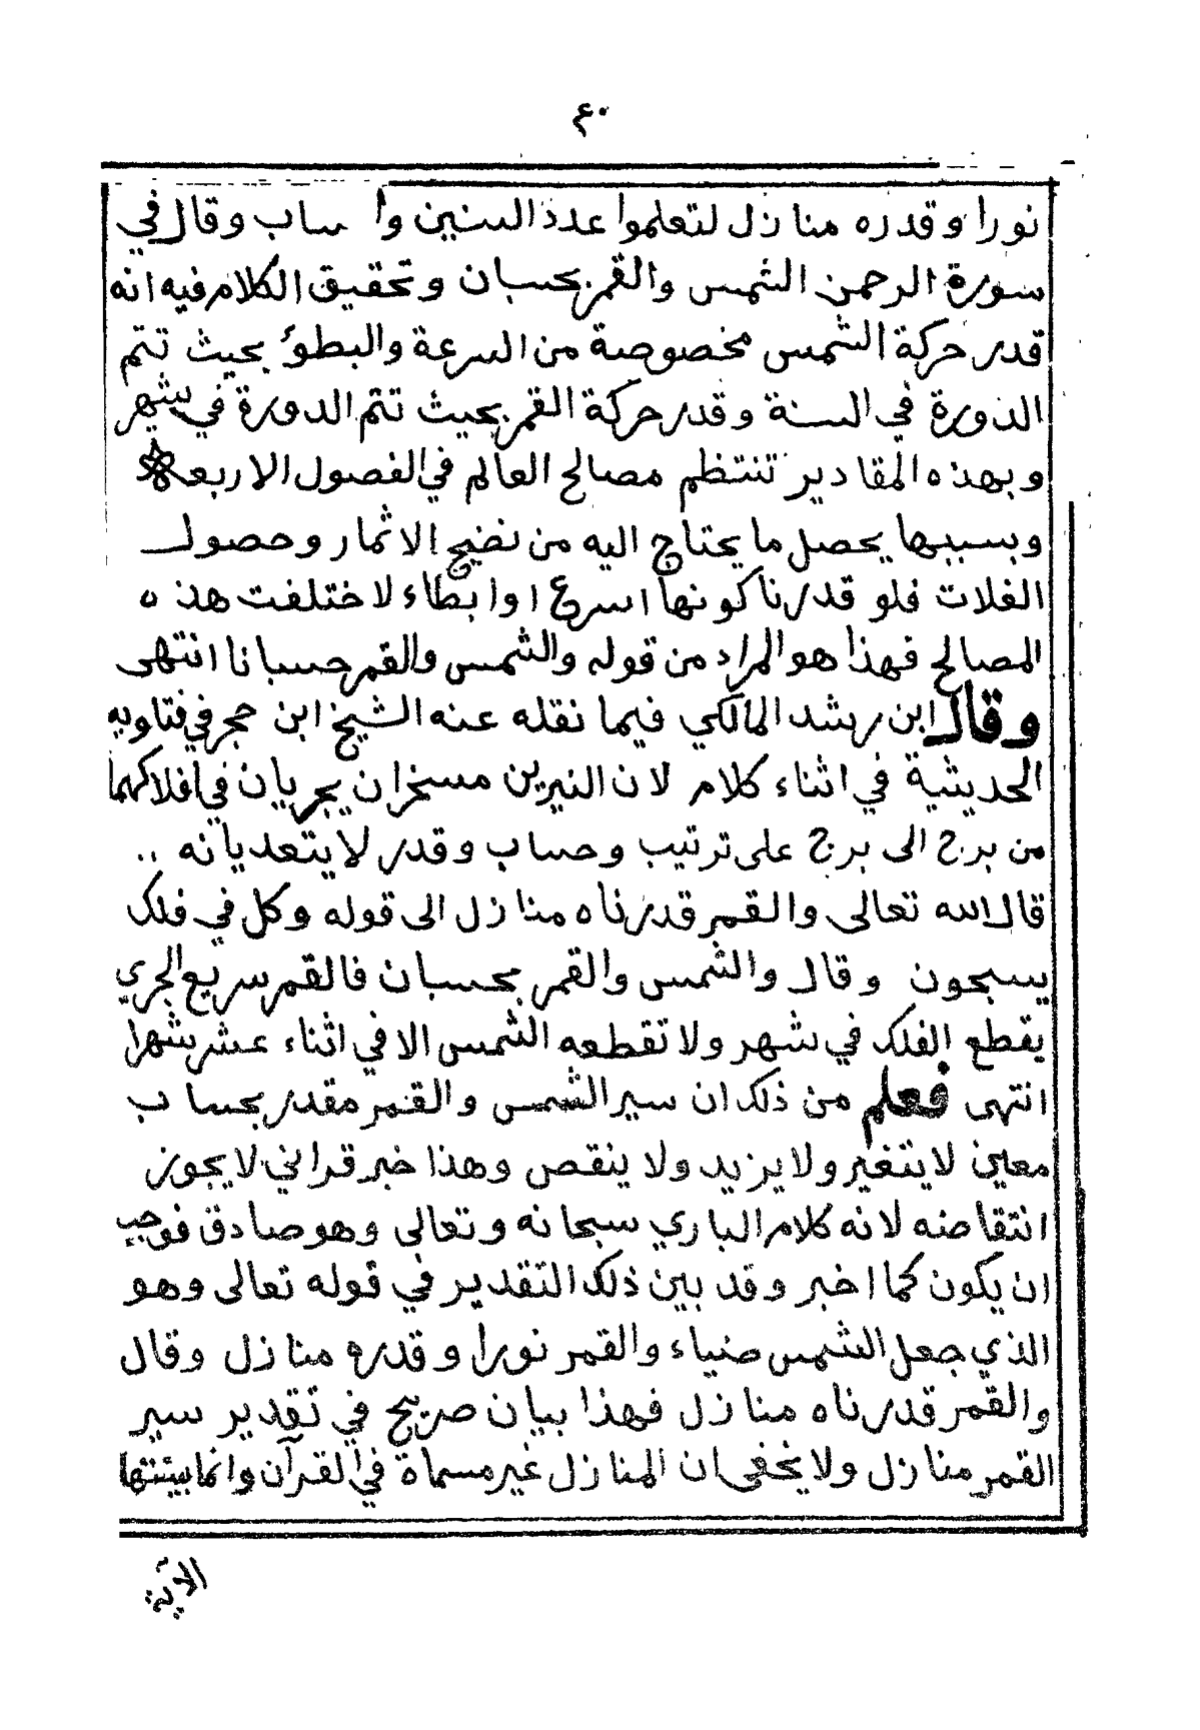 ٤٠
نورا وقدره منازل لتعلموا عدد السنين وا ساب وقال في
سورة الرحمن الشمس والقمر بحسبان وتحقيق الكلام فيه انه
قدر حركة الشمس مخصوصة من السرعة والبطوٴ بحيث تتم
الدورة في السنة وقدر حركة القمر بحيث تتم الدورة في شهر
وبهذه المقادير تنتظم مصالح العالم في الفصول الاربعة
وبسببها يحصل ما يحتاج اليه من نضج الاثمار وحصول
الغلات فلو قدرنا كونها اسرع اوابطاء لاختلفت هذه
المصالح فهذا هو المراد من قوله والشمس والقمر حسبانا انتهى
وقال ابن رشد المالكي فيما نقله عنه الشيخ ابن حجر في فتاويه
الحديثية في اثناء كلام لان النيرين مسخران يجريان في افلاكهما
من برج الى برج على ترتيب وحساب وقدر لا يتعديانه ..
قال الله تعالى والقمر قدرناه منازل الى قوله وكل في فلك
يسبحون وقال والشمس والقمر بحسبان فالقمر سريع الجري
يقطع الفلك في شهر ولا تقطعه الشمس الا في اثناء عشر شهرا
انتهى فعلم من ذلك ان سير الشمس والقمر مقدر بحساب
معين لا يتغير ولا يزيد ولا ينقص وهذا خبر قراني لا يجوز
انتقاضه لانه كلام الباري سبحانه وتعالى وهو صادق فوجب
ان يكون كما اخبر وقد بين ذلك التقدير في قوله تعالى وهو
الذي جعل الشمس ضياء والقمر نورا وقدره منازل وقال
والقمر قدرناه منازل فهذا بيان صريح في تقدير سير
القمر منازل ولا يخفى ان المنازل غير مسماة في القرآن وانما بينتها
الآية